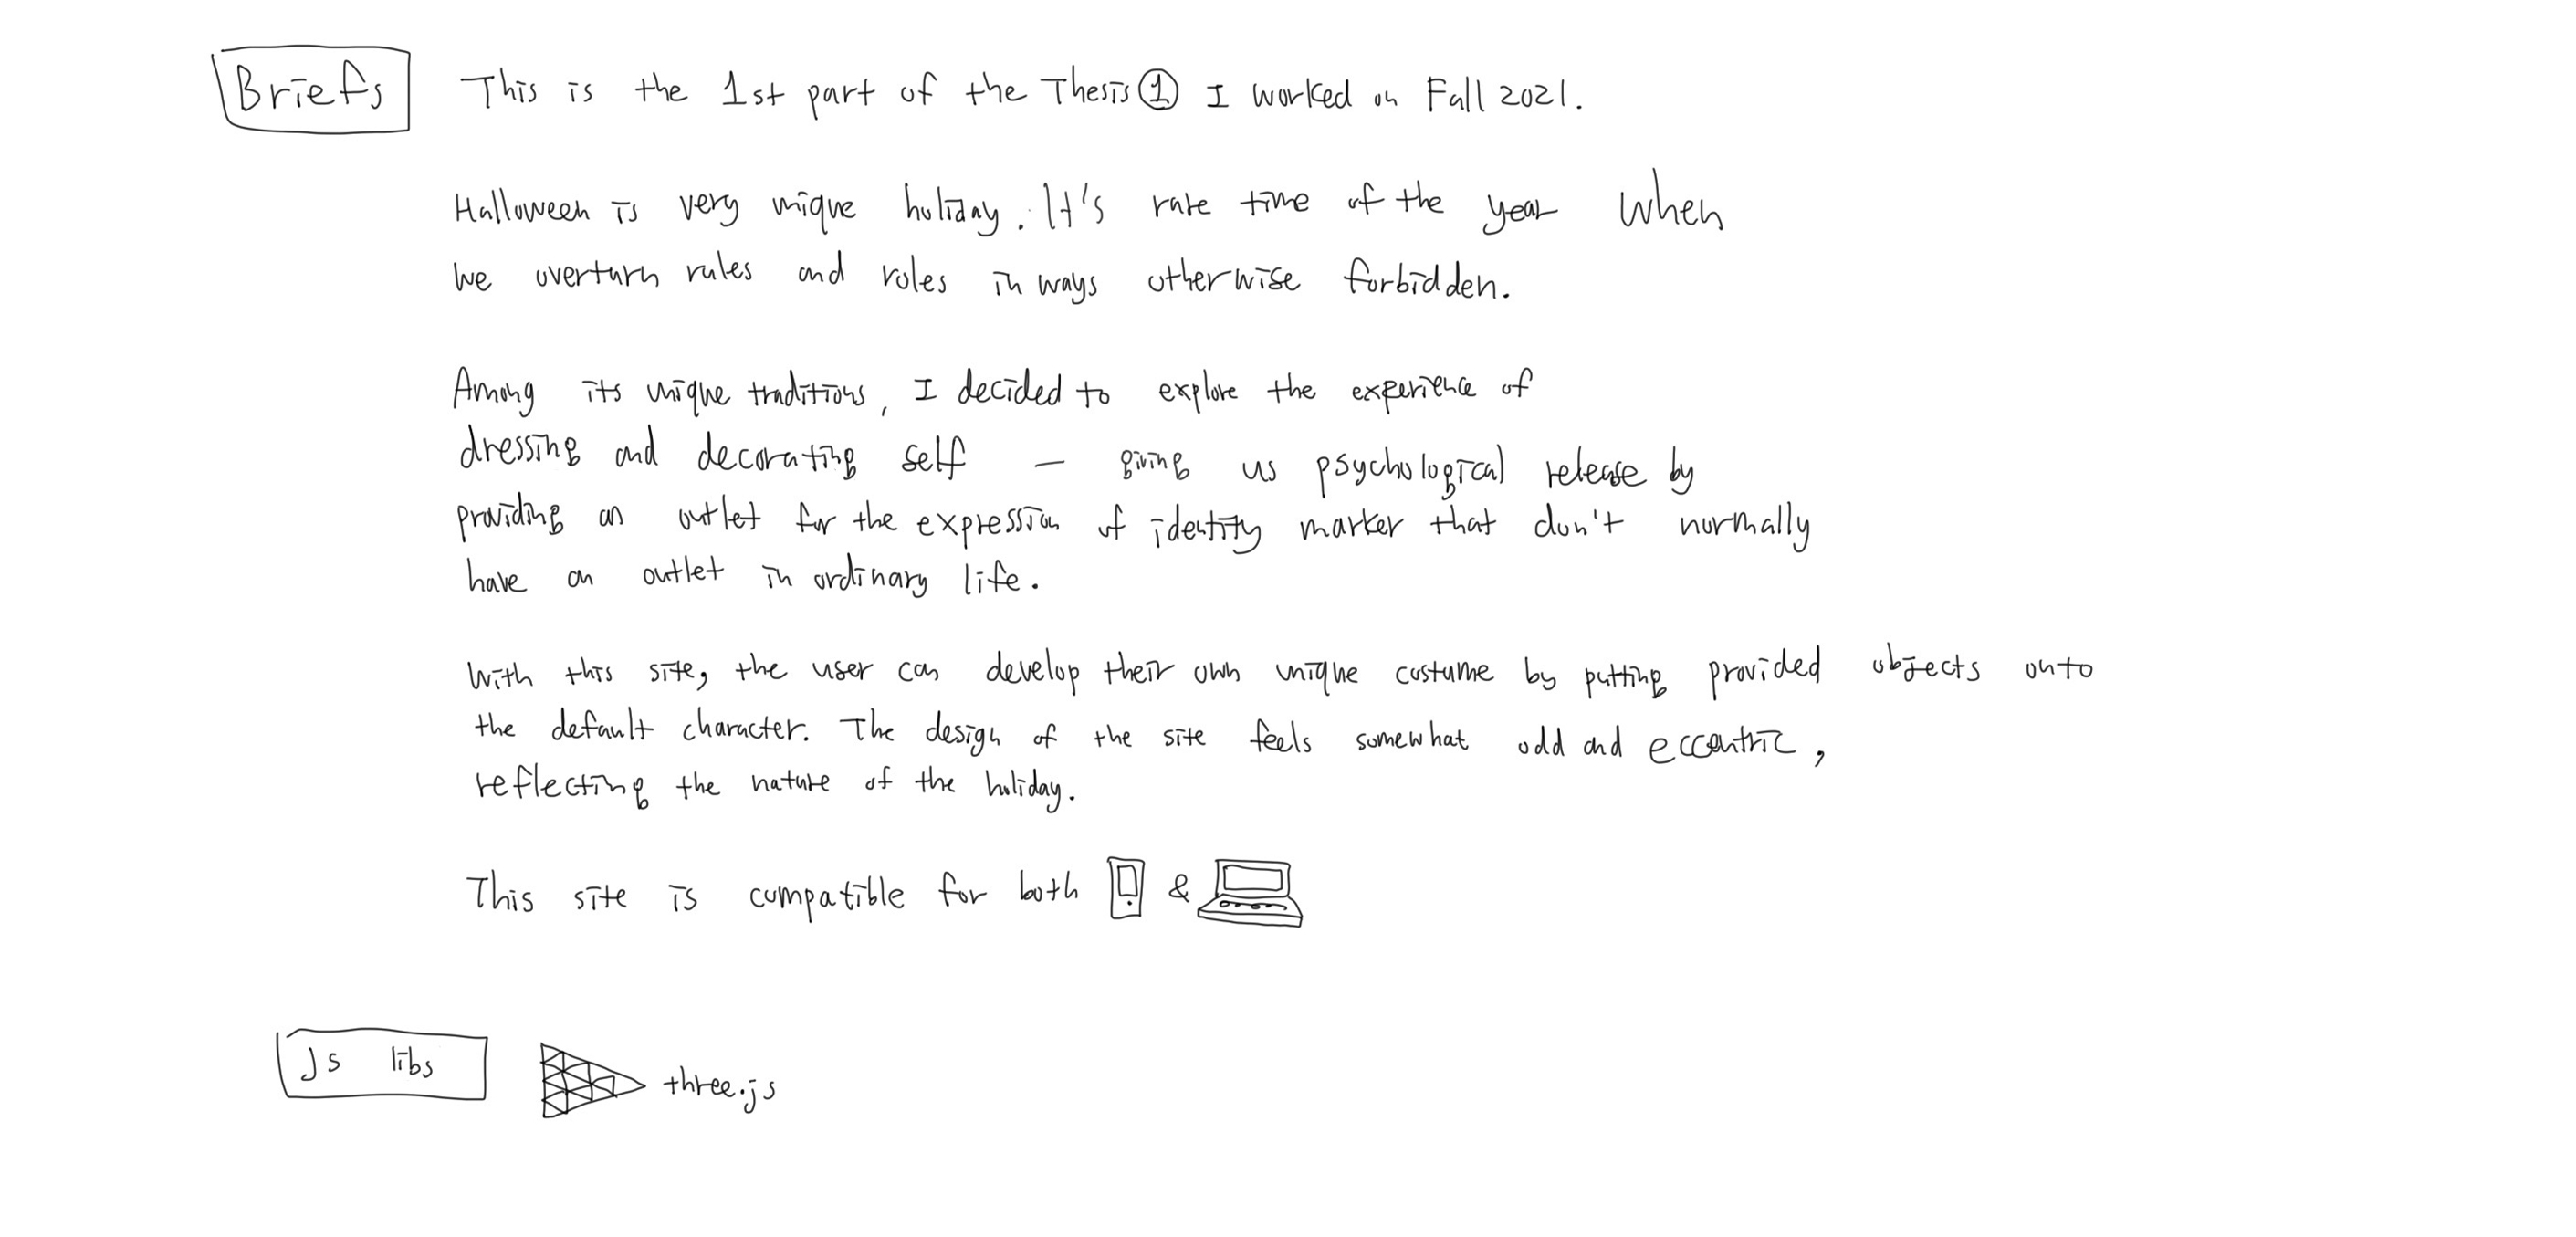 Briefs
This is the 1st part of the Thesis ① I worked on Fall 2021.
Halloween is very unique holiday. It's rare time of the year when
we overturn rules and roles in ways otherwise forbidden.
Among its unique traditions, I decided to explore the experience of
dressing and decorating self — giving us psychological release by
providing an outlet for the expression of identity marker that don't normally
have an outlet in ordinary life.
With this site, the user can develop their own unique costume by putting provided objects onto
the default character. The design of the site feels somewhat odd and eccentric,
reflecting the nature of the holiday.
This site is compatible for both &
Js libs
three.js